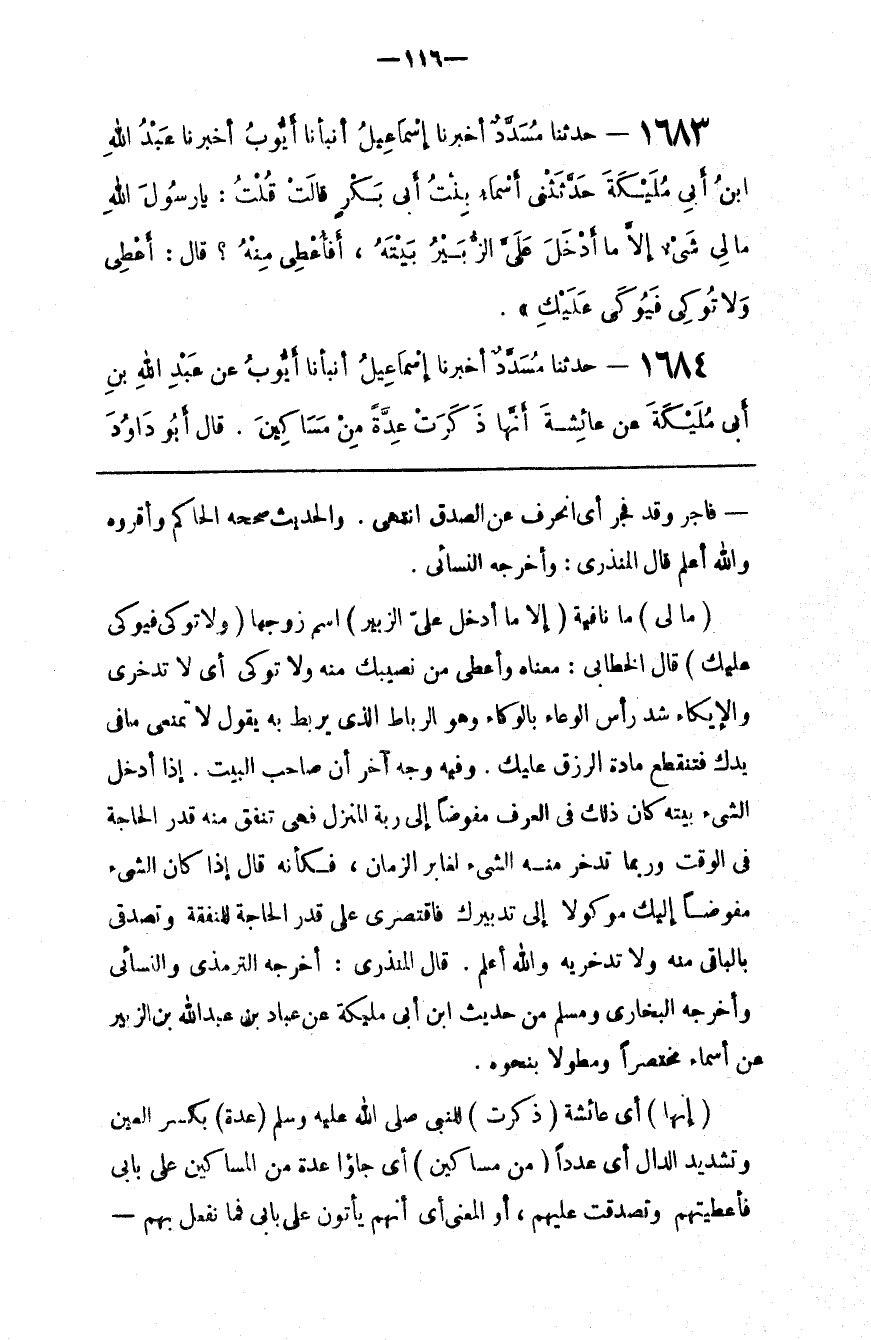 —١١٦—
١٦٨٣ — حدثنا مُسَدَّدٌ أخبرنا إِسْمَاعِيلُ أنبأنا أَيُّوبُ أخبرنا عَبْدُ اللهِ
ابنُ أَبِي مُلَيْكَةَ حَدَّثَتْنِى أَسْمَاءِ بِنْتُ أَبى بَكْرٍ قالَتْ قُلْتُ : يارسُولَ اللهِ
ما لِي شَىْءٌ إِلاَّ ما أَدْخَلَ عَلَىَّ الزُّبَيْرُ بَيْتَهُ ، أَفأُعْطِى مِنْهُ ؟ قال : أَعْطِى
وَلا تُوكِى فَيُوكَى عَلَيْكِ » .
١٦٨٤ — حدثنا مُسَدَّدٌ أخبرنا إِسْمَاعِيلُ أنبأنا أَيُّوبُ عن عَبْدِ اللهِ بنِ
أَبى مُلَيْكَةَ عن عائِشةَ أَنَّها ذَكَرَتْ عِدَّةً مِنْ مَسَاكِينَ . قال أَبُو دَاوُدَ
— فاجر وقد فجر أى انحرف عن الصدق انتهى . والحديث صححه الحاكم وأقروه
والله أعلم قال المنذرى : وأخرجه النسائى .
( ما لى ) ما نافية ( إلا ما أدخل علىّ الزبير ) اسم زوجها ( ولا توكى فيوكى
عليك ) قال الخطابى : معناه وأعطى من نصيبك منه ولا توكى أى لا تدخرى
والإيكاء شد رأس الوعاء بالوكاء وهو الرباط الذى يربط به يقول لا تمنعى مافى
يدك فتنقطع مادة الرزق عليك . وفيه وجه آخر أن صاحب البيت . إذا أدخل
الشىء بيته كان ذلك فى العرف مفوضاً إلى ربة المنزل فهى تنفق منه قدر الحاجة
فى الوقت وربما تدخر منه الشىء لغابر الزمان ، فكأنه قال إذا كان الشىء
مفوضاً إليك موكولا إلى تدبيرك فاقتصرى على قدر الحاجة للنفقة وتصدقى
بالباقى منه ولا تدخريه والله أعلم . قال المنذرى : أخرجه الترمذى والنسائى
وأخرجه البخارى ومسلم من حديث ابن أبى مليكة عن عباد بن عبدالله بن الزبير
عن أسماء مختصراً ومطولا بنحوه .
( إنها ) أى عائشة ( ذكرت ) للنبى صلى الله عليه وسلم (عدة) بكسر العين
وتشديد الدال أى عدداً ( من مساكين ) أى جاؤا عدة من المساكين على بابى
فأعطيتهم وتصدقت عليهم ، أو المعنى أى أنهم يأتون على بابى فما نفعل بهم —